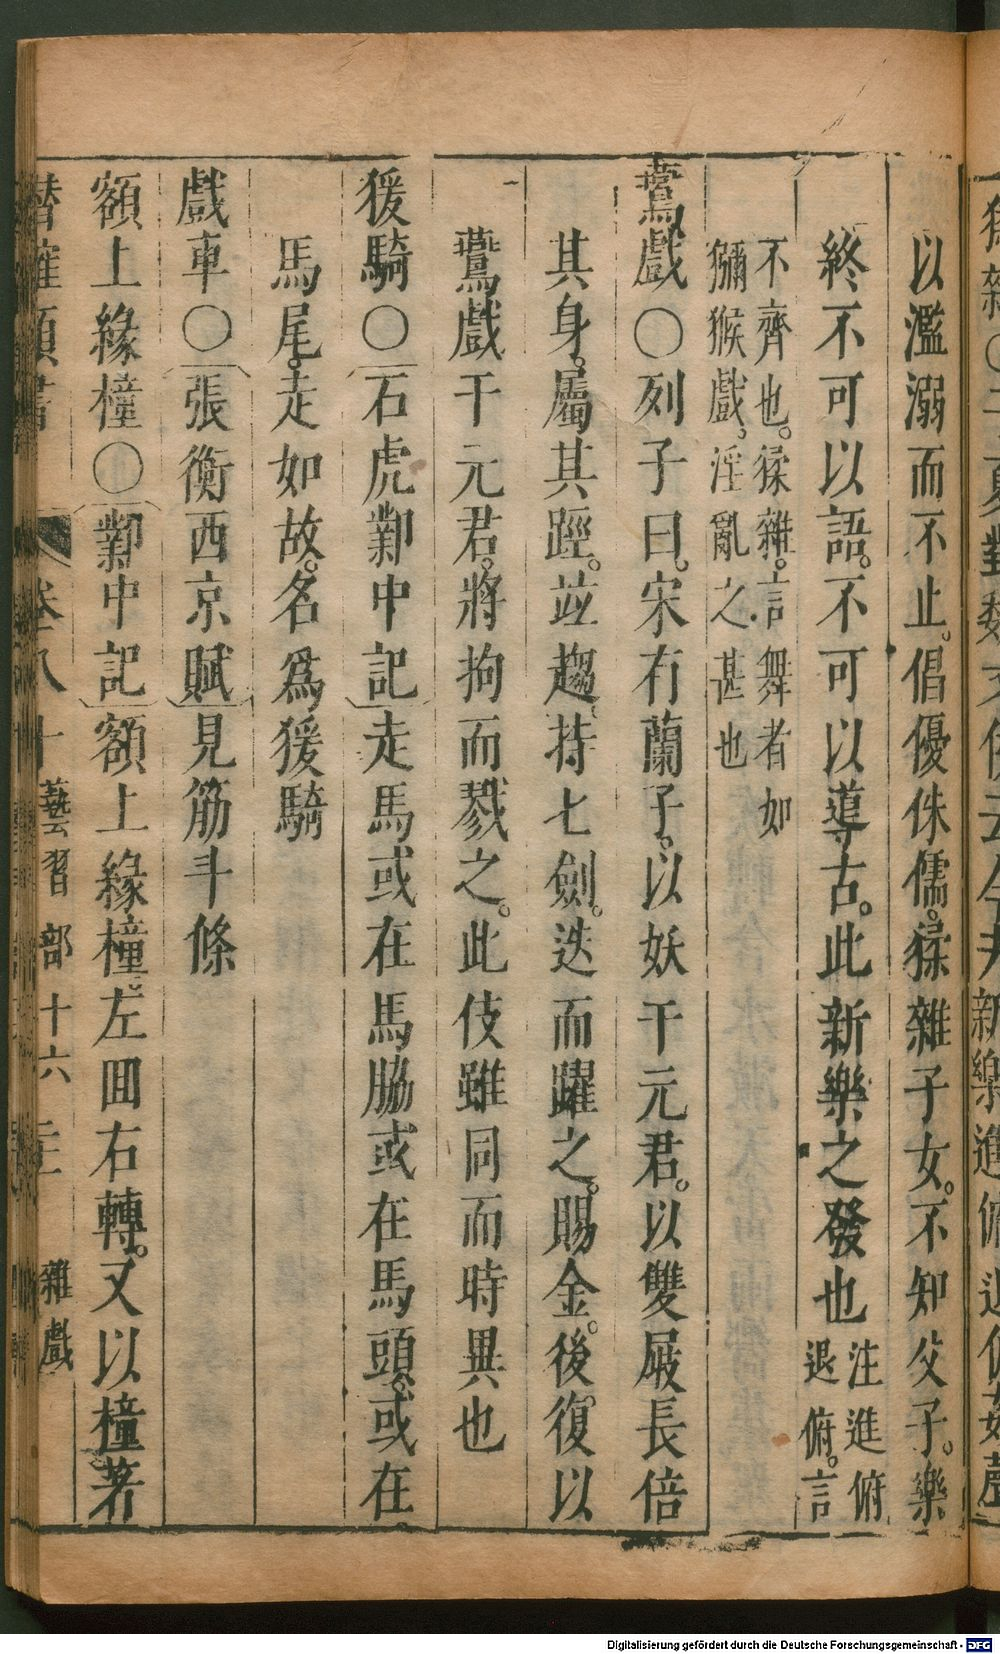 以濫溺而不止。倡優侏儒。猱雜子女。不知父子。樂
終不可以語。不可以導古。此新樂之發也注進俯退俯。言
不齊也。猱雜。言舞者如
獼猴戲。淫亂之甚也
鷰戲〇列子曰。宋有蘭子。以妖干元君。以雙屐長倍
其身。屬其踁。竝趨。持七劍。迭而躍之。賜金。後復以
鷰戲干元君。將拘而戮之。此伎雖同而時異也
猨騎〇石虎鄴中記走馬或在馬脇或在馬頭。或在
馬尾。走如故。名爲猨騎
戲車〇張衡西京賦見筋斗條
額上緣橦〇鄴中記額上緣橦。左回右轉。又以橦著
卷八十
藝習部十六
雜戲
Digitalisierung gefördert durch die Deutsche Forschungsgemeinschaft - DFG